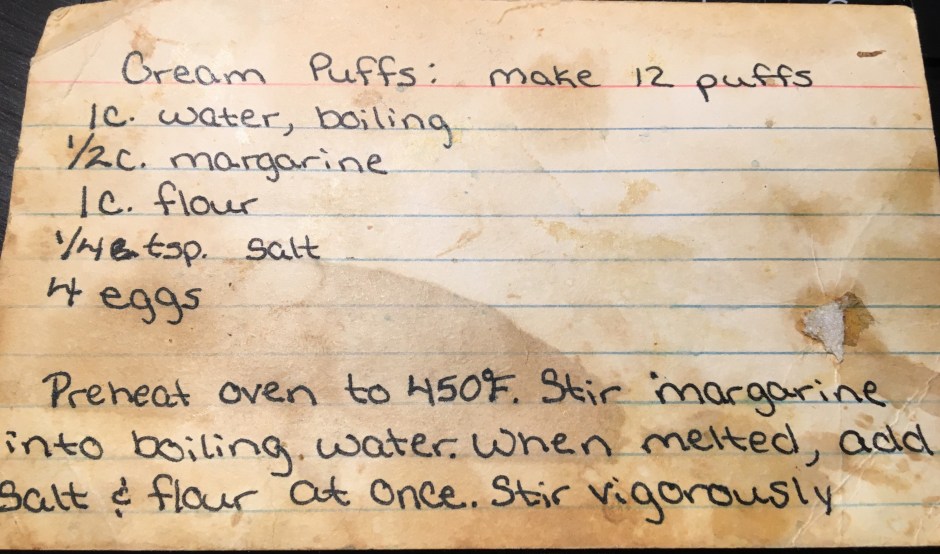 Cream Puffs: make 12 puffs
1c. water, boiling
1/2c. margarine
1c. flour
1/4 tsp. salt
4 eggs
Preheat oven to 450°F. Stir margarine
into boiling water. When melted, add
Salt & flour at once. Stir vigorously